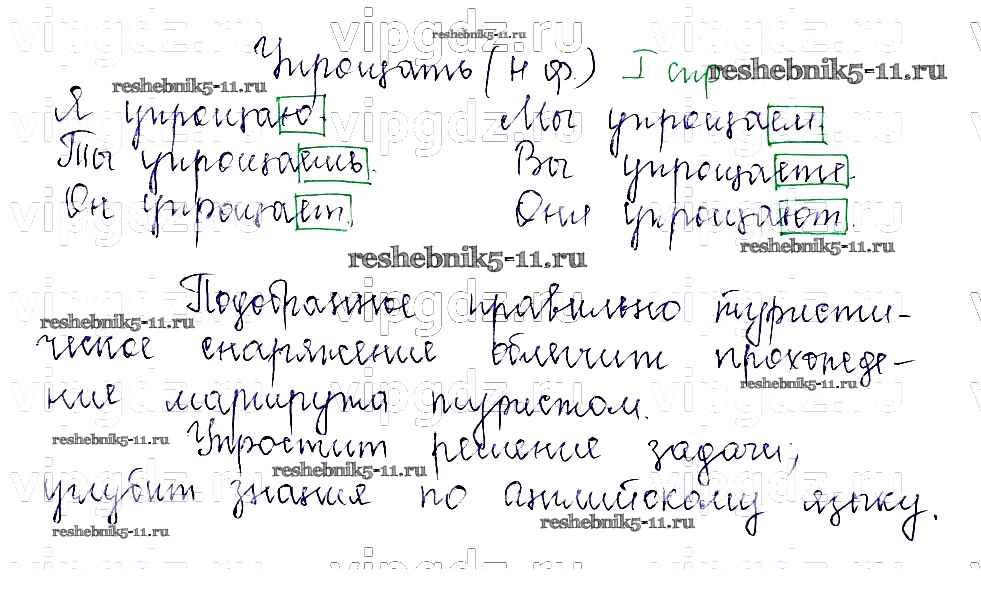 Упрощать (н ф.) I спр
Я упрощаю. Мы упрощаем.
Ты упрощаешь. Вы упрощаете.
Он упрощает. Они упрощают.
Подобранное правильно туристи-
ческое снаряжение облегчит прохожде-
ние маршрута туристом.
Упростит решение задачи,
углубит знания по английскому языку.
vipgdz.ru
reshebnik5-11.ru